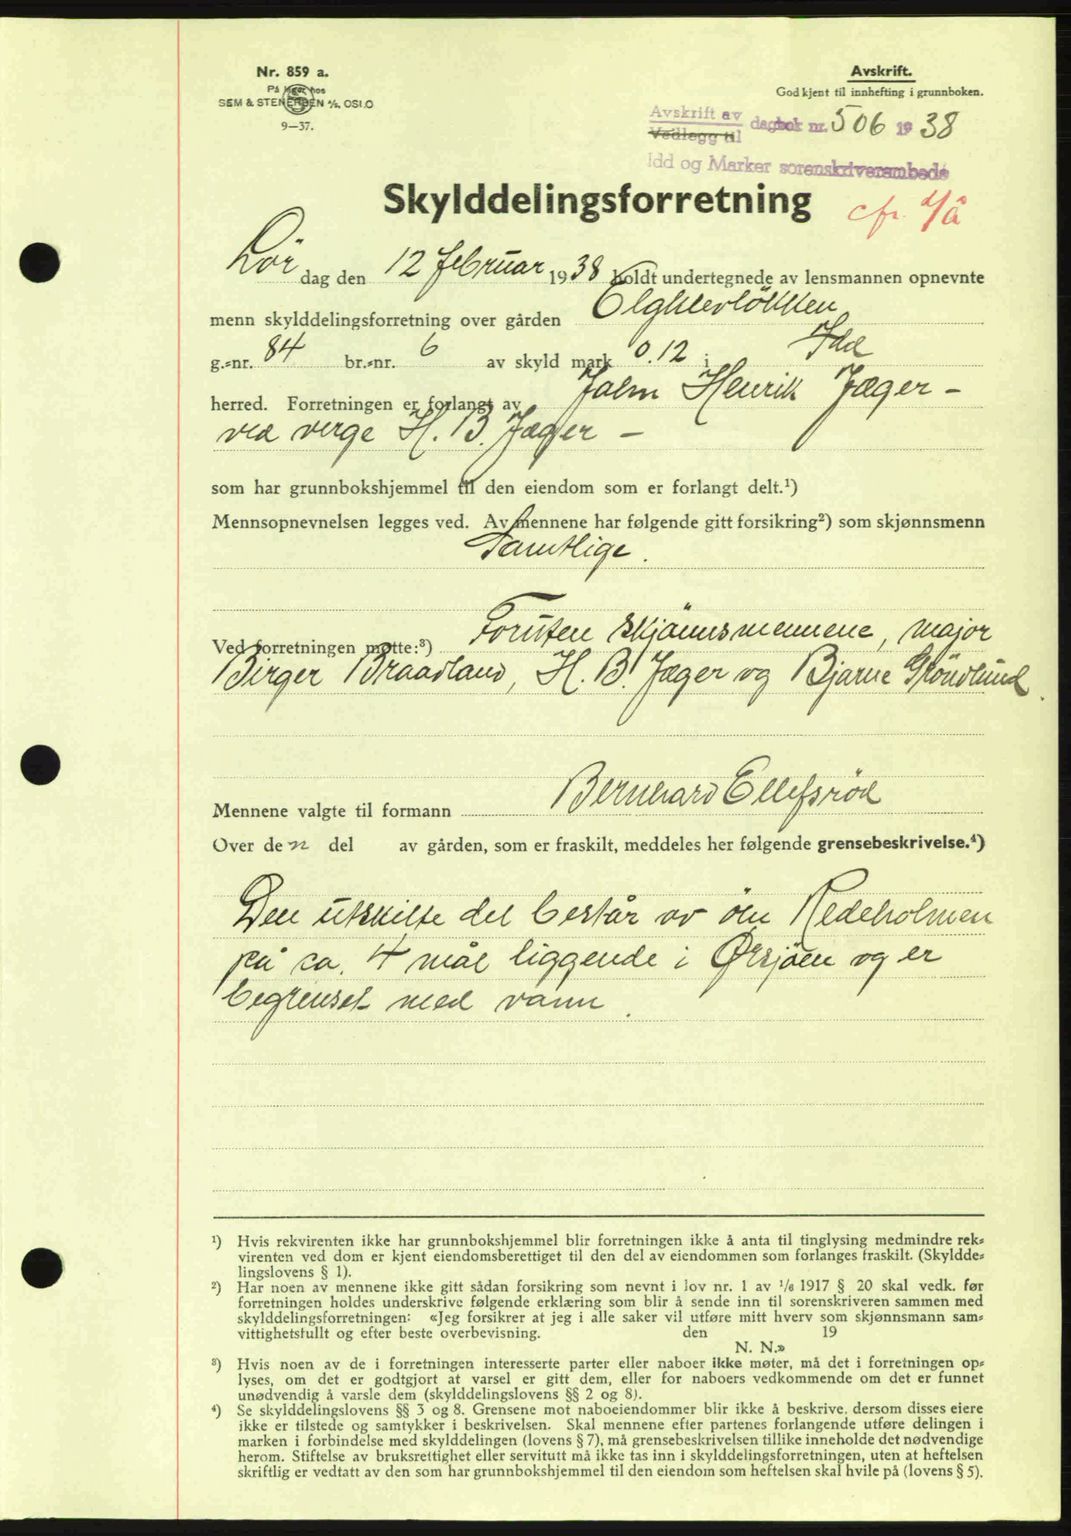 Nr. 859 a.
På lager hos
SEM & STENERSEN A/S, OSLO
9—37.
Avskrift.
Godkjent til innhefting i grunnboken.
Avskrift av
Vedlegg til
dagbok nr. 506 1938
Idd og Marker sorenskriverembede
Skylddelingsforretning
cfr.
Lør dag den 12 februar 1938 holdt undertegnede av lensmannen opnevnte
menn skylddelingsforretning over gården Elgklevløkken
g.-nr. 84 br.-nr. 6 av skyld mark 0.12 i Idd
herred. Forretningen er forlangt av Jolm Henrik Jæger -
ved verge H. B. Jæger -
som har grunnbokshjemmel til den eiendom som er forlangt delt.¹)
Mennsopnevnelsen legges ved. Av mennene har følgende gitt forsikring²) som skjønnsmenn
Samtlige.
Ved forretningen møtte:³) Foruten skjønnsmennene, major
Birger Braadland, H. B. Jæger og Bjarne Grøndlund.
Mennene valgte til formann Bernhard Ellefsrød
Over den del av gården, som er fraskilt, meddeles her følgende grensebeskrivelse.⁴)
Den utskilte del består av øen Redeholmen
på ca. 4 mål liggende i Ørsjøen og er
begrenset med vann.
¹) Hvis rekvirenten ikke har grunnbokshjemmel blir forretningen ikke å anta til tinglysing medmindre rek-
virenten ved dom er kjent eiendomsberettiget til den del av eiendommen som forlanges fraskilt. (Skyldde-
lingslovens § 1).
²) Har noen av mennene ikke gitt sådan forsikring som nevnt i lov nr. 1 av ¹/₆ 1917 § 20 skal vedk. før
forretningen holdes underskrive følgende erklæring som blir å sende inn til sorenskriveren sammen med
skylddelingsforretningen: «Jeg forsikrer at jeg i alle saker vil utføre mitt hverv som skjønnsmann sam-
vittighetsfullt og efter beste overbevisning. den 19
N. N.»
³) Hvis noen av de i forretningen interesserte parter eller naboer ikke møter, må det i forretningen op-
lyses, om det er godtgjort at varsel er gitt dem, eller for naboers vedkommende om det er funnet
unødvendig å varsle dem (skylddelingslovens §§ 2 og 8).
⁴) Se skylddelingslovens §§ 3 og 8. Grensene mot naboeiendommer blir ikke å beskrive, dersom disses eiere
ikke er tilstede og samtykker i beskrivelsen. Skal mennene efter partenes forlangende utføre delingen i
marken i forbindelse med skylddelingen (lovens § 7), må grensebeskrivelsen tillike inneholde det nødvendige
herom. Stiftelse av bruksrettighet eller servitutt må ikke tas inn i skylddelingsforretningen, uten at heftelsen
skriftlig er vedtatt av den som har grunnbokshjemmel til den eiendom som heftelsen skal hvile på (lovens § 5).